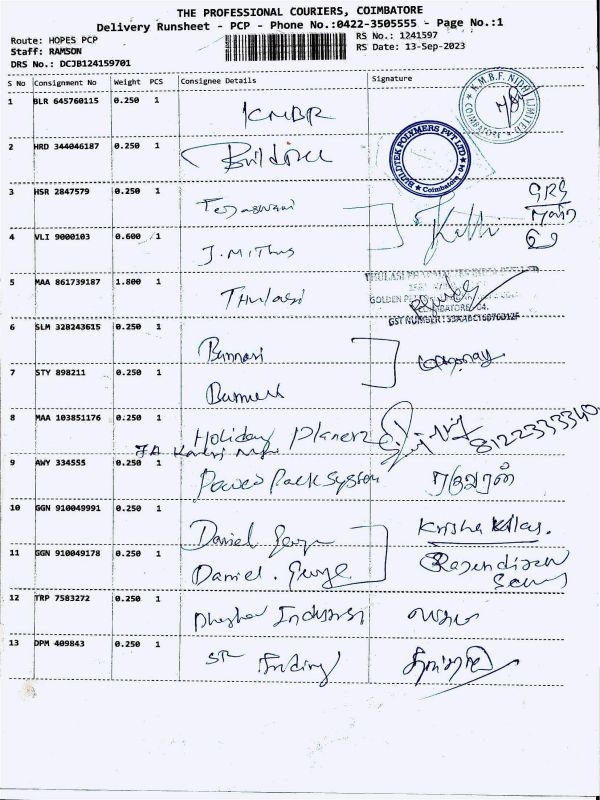 THE PROFESSIONAL COURIERS, COIMBATORE
Delivery Runsheet - PCP - Phone No.:0422-3505555 - Page No.:1
Route: HOPES PCP
Staff: RAMSON
DRS No.: DCJB124159701
RS No.: 1241597
RS Date: 13-Sep-2023
S No Consignment No Weight PCS Consignee Details Signature
1 BLR 645760115 0.250 1 KMBR
K.M.B.F. NIDHI LIMITED COIMBATORE
2 HRD 344046187 0.250 1
BUILDTEK POLYMERS PVT LTD Coimbatore
3 HSR 2847579 0.250 1 Tejaswani
4 VLI 9000103 0.600 1 J. Mithus
5 MAA 861739187 1.800 1 Thulasi
THULASI
COIMBATORE
GST NUMBER :
6 SLM 328243615 0.250 1 Bannari
7 STY 898211 0.250 1
8 MAA 103851176 0.250 1 Holiday Planerz 8122333340
9 AWY 334555 0.250 1 Power Pack System
10 GGN 910049991 0.250 1 Daniel George
11 GGN 910049178 0.250 1 Daniel. George Rajendiran
12 TRP 7583272 0.250 1
13 DPM 409843 0.250 1 SR